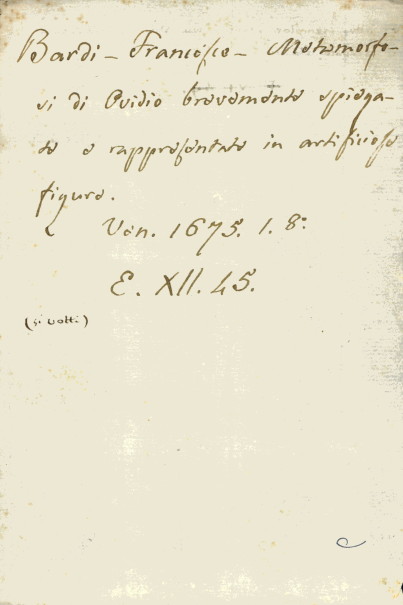 Bardi - Francesco - Metamorfo-
si di Ovidio brevemente spiega-
te e rappresentate in artificiose
figure.
Ven. 1675. 1. 8.°
E. XII. 45.
(si volti)